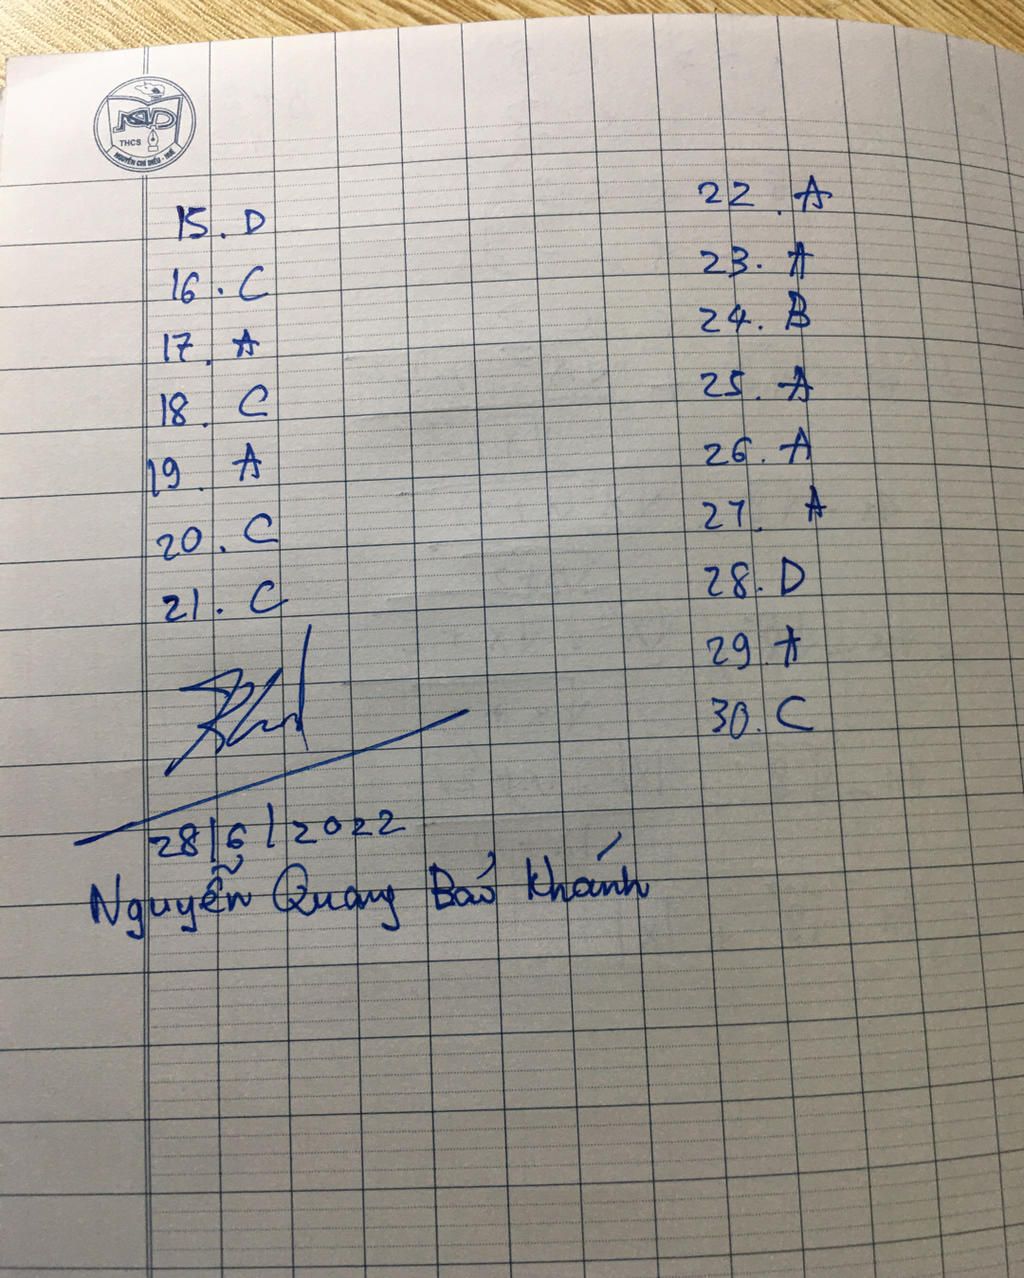 NCD
THCS
NGUYỄN CHÍ DIỂU - HUẾ
15. D
16. C
17. A
18. C
19. A
20. C
21. C
22. A
23. A
24. B
25. A
26. A
27. A
28. D
29 A
30. C
28/6/2022
Nguyễn Quang Bảo Khánh